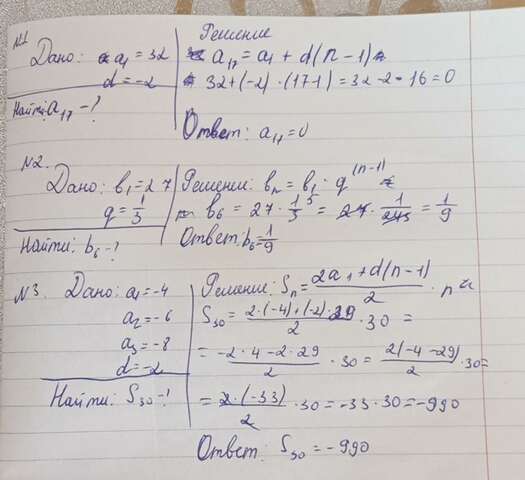 №1
Дано: a₁ = 32
d = -2
Найти: a₁₇ - ?
Решение
a₁₇ = a₁ + d(n-1)
32 + (-2) · (17-1) = 32 - 2 · 16 = 0
Ответ: a₁₇ = 0
№2.
Дано: b₁ = 27
q = 1/3
Найти: b₆ - ?
Решение: bₙ = b₁ · q⁽ⁿ⁻¹⁾
b₆ = 27 · 1/3⁵ = 27 · 1/243 = 1/9
Ответ: b₆ = 1/9
№3.
Дано: a₁ = -4
a₂ = -6
a₃ = -8
d = -2
Найти: S₃₀ - ?
Решение: Sₙ = (2a₁ + d(n-1))/2 · n
S₃₀ = (2·(-4) + (-2)·29)/2 · 30 =
= (-2·4 - 2·29)/2 · 30 = 2(-4 - 29)/2 · 30 =
= 2·(-33)/2 · 30 = -33 · 30 = -990
Ответ: S₃₀ = -990